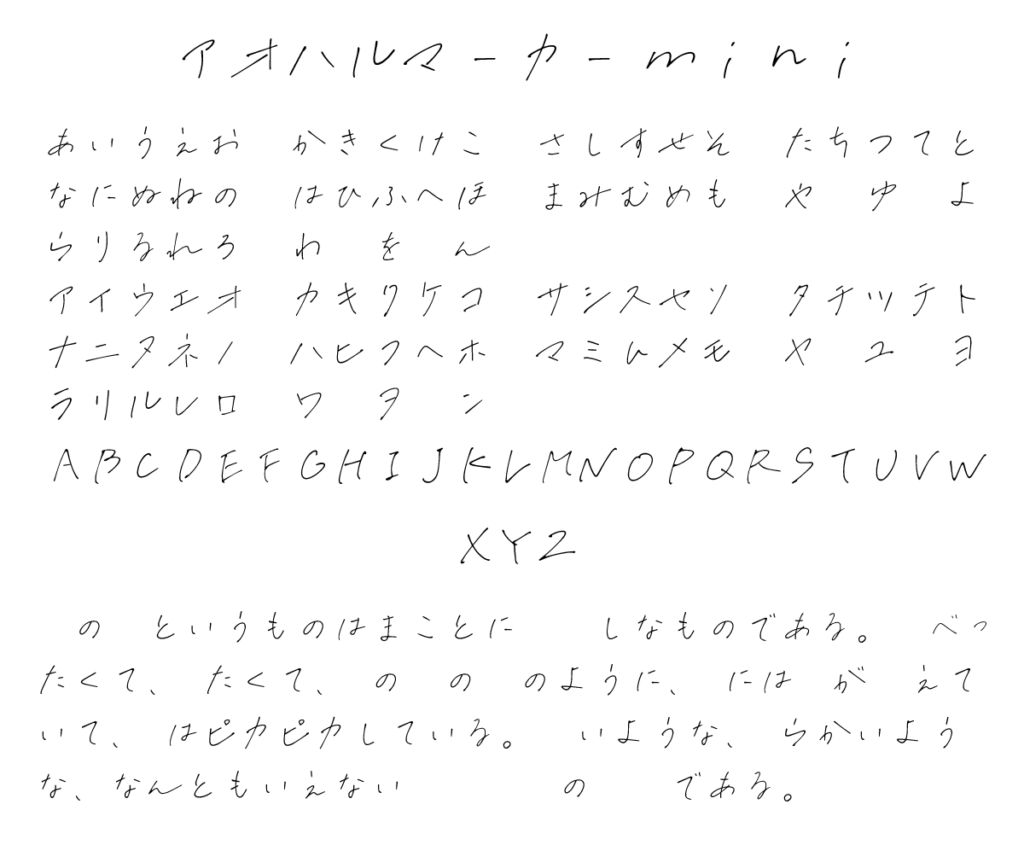 アオハルマーカーmini
あいうえお かきくけこ さしすせそ たちつてと
なにぬねの はひふへほ まみむめも や ゆ よ
らりるれろ わ を ん
アイウエオ カキクケコ サシスセソ タチツテト
ナニヌネノ ハヒフヘホ マミムメモ ヤ ユ ヨ
ラリルレロ ワ ヲ ン
ABCDEFGHIJKLMNOPQRSTUVW
XYZ
の というものはまことに しなものである。 べっ
たくて、 たくて、 の の のように、 には が えて
いて、 はピカピカしている。 いような、 らかいよう
な、なんともいえない の である。